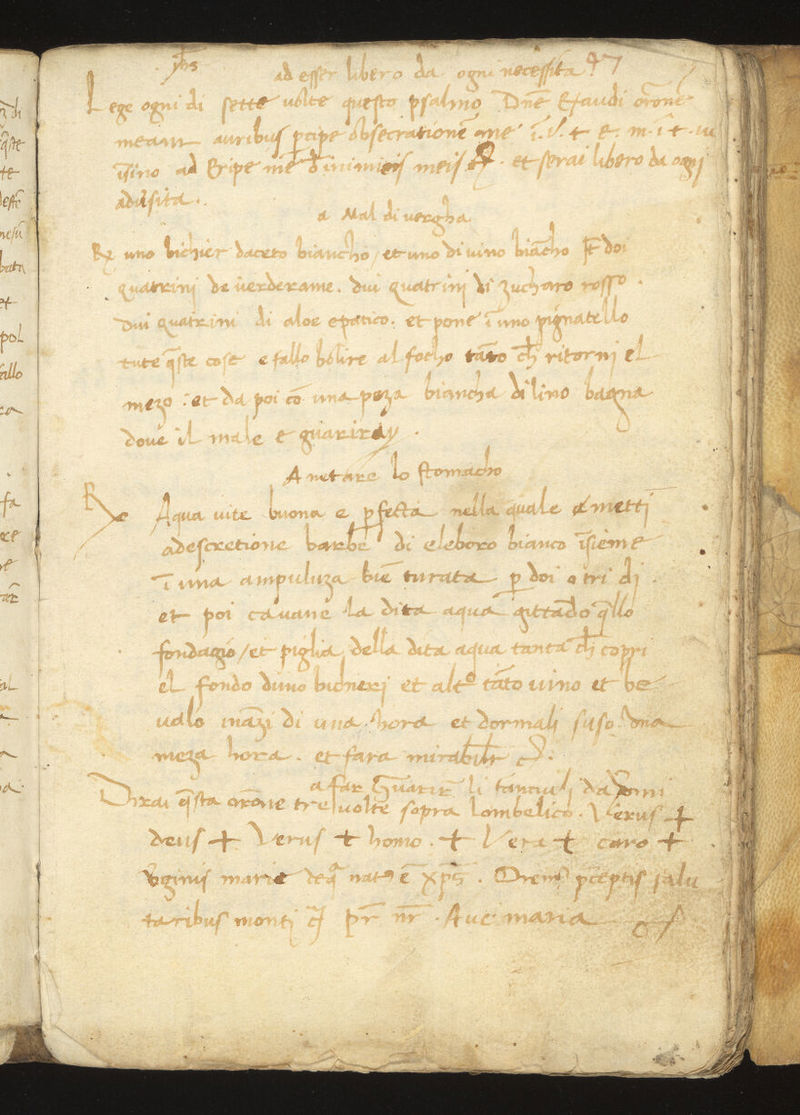 yhs
ad esser libero da ogni necessita 97
Lege ogni di sette uolte questo psalmo Dnē Exaudi orōnē
meam auribus percipe obsecrationē me ī. v. t. E. m. ī t. iu
isino ad Eripe me d inimicis meis et serai libero da ogni
aduersita.
a Mal di uergha
Rx uno bichier daceto biancho / et uno di uino biācho doi
quatrini de uerderame. dui quatrinj di zucharo rosso.
Dui quatrini di aloe epatico: et pone ī uno pignatello
tute q̄ste cose e fallo bolire al focho tāto ch̄ ritorni el
mezo: et da poi cō una peza biancha di lino bagna
doue il male e guariray.
A netare lo stomacho
Rx Aqua uite buona e perfecta nella quale metti
adescretione barbe di eleboro bianco īsieme
ī una ampuluza biē turata per doi o tri di
et poi cauane la dita aqua gittādo q̄llo
fondagio / et piglia della dita aqua tanta ch̄ copri
el fondo duno bicherj et altº tāto uino et be
ualo ināzi di una hora et dormali suso una
meza hora. et fara mirabilr
a far Guarir li fanciulj da uermi
Dirai q̄sta orōne tre uolte sopra lombelico. Verus +
deus + Verus + homo. + Vera + caro +
Virginis marie de q̄ nat9 ē xp̄s. Orem9 p̄ceptis salu
taribus moniti pr̄ nr̄. Aue maria